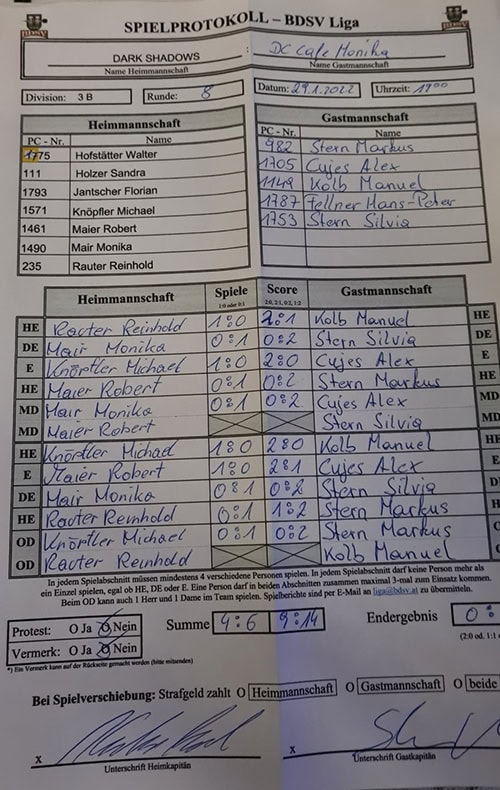 SPIELPROTOKOLL – BDSV Liga
DARK SHADOWS : DC Cafe Monika
Name Heimmannschaft Name Gastmannschaft
Division: 3 B Runde: 8 Datum: 29.1.2022 Uhrzeit: 19⁰⁰
Heimmannschaft Gastmannschaft
PC - Nr. Name PC - Nr. Name
1775 Hofstätter Walter 982 Stern Markus
111 Holzer Sandra 1705 Cujes Alex
1793 Jantscher Florian 1149 Kolb Manuel
1571 Knöpfler Michael 1787 Fellner Hans-Peter
1461 Maier Robert 1753 Stern Silvia
1490 Mair Monika
235 Rauter Reinhold
Heimmannschaft Spiele Score Gastmannschaft
1:0 oder 0:1 2:0, 2:1, 0:2, 1:2
HE Rauter Reinhold 1:0 2:1 Kolb Manuel HE
DE Mair Monika 0:1 0:2 Stern Silvia DE
E Knöpfler Michael 1:0 2:0 Cujes Alex E
HE Maier Robert 0:1 0:2 Stern Markus HE
MD Mair Monika 0:1 0:2 Cujes Alex MD
MD Maier Robert Stern Silvia MD
HE Knöpfler Michael 1:0 2:0 Kolb Manuel HE
E Maier Robert 1:0 2:1 Cujes Alex E
DE Mair Monika 0:1 0:2 Stern Silvia DE
HE Rauter Reinhold 0:1 1:2 Stern Markus
OD Knöpfler Michael 0:1 0:2 Stern Markus
OD Rauter Reinhold Kolb Manuel
In jedem Spielabschnitt müssen mindestens 4 verschiedene Personen spielen. In jedem Spielabschnitt darf keine Person mehr als
ein Einzel spielen, egal ob HE, DE oder E. Eine Person darf in beiden Abschnitten zusammen maximal 3-mal zum Einsatz kommen.
Beim OD kann auch 1 Herr und 1 Dame im Team spielen. Spielberichte sind per E-Mail an liga@bdsv.at zu übermitteln.
Protest: O Ja O Nein Summe 4:6 9:14 Endergebnis 0:
Vermerk: O Ja O Nein (2:0 od. 1:1
*) Ein Vermerk kann auf der Rückseite gemacht werden (bitte
Bei Spielverschiebung: Strafgeld zahlt O Heimmannschaft O Gastmannschaft O beide
X X
Unterschrift Heimkapitän Unterschrift Gastkapitän